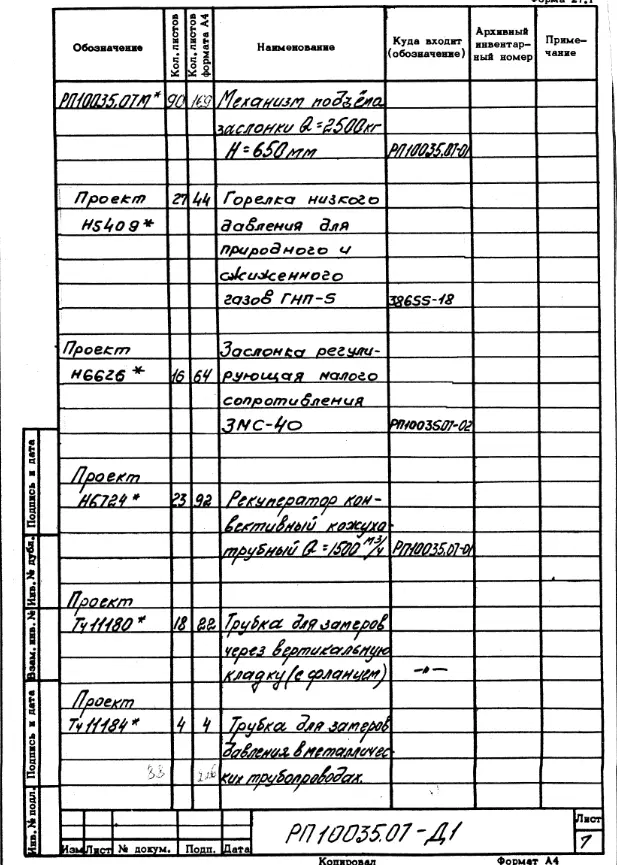 Форма 27.1
Обозначение Кол. листов Кол. листов формата А4 Наименование Куда входит (обозначение) Архивный инвентарный номер Примечание
РП10035.07М* 90 169 Механизм подъёма
заслонки Q=2500кг
H=650мм РП10035.07-01
Проект 27 44 Горелка низкого
Н5409* давления для
природного и
сжиженного
газов ГНП-5 38655-18
Проект Заслонка регули-
Н6626* 16 64 рующая малого
сопротивления
ЗМС-40 РП10035.07-02
Проект
Н6724* 23 92 Рекуператор кон-
вективный кожухо-
трубный Q=1500 м3/ч РП10035.07-01
Проект
Тч11180* 18 22 Трубка для замеров
через вертикальную
кладку (с фланцем) —„—
Проект
Тч11184* 4 4 Трубка для замеров
давления в металличес-
33 ких трубопроводах.
Подпись и дата
Инв. № дубл.
Взам. инв. №
Подпись и дата
Инв. № подл.
РП10035.07-Д1
Лист
7
Изм Лист № докум. Подп. Дата
Копировал Формат А4